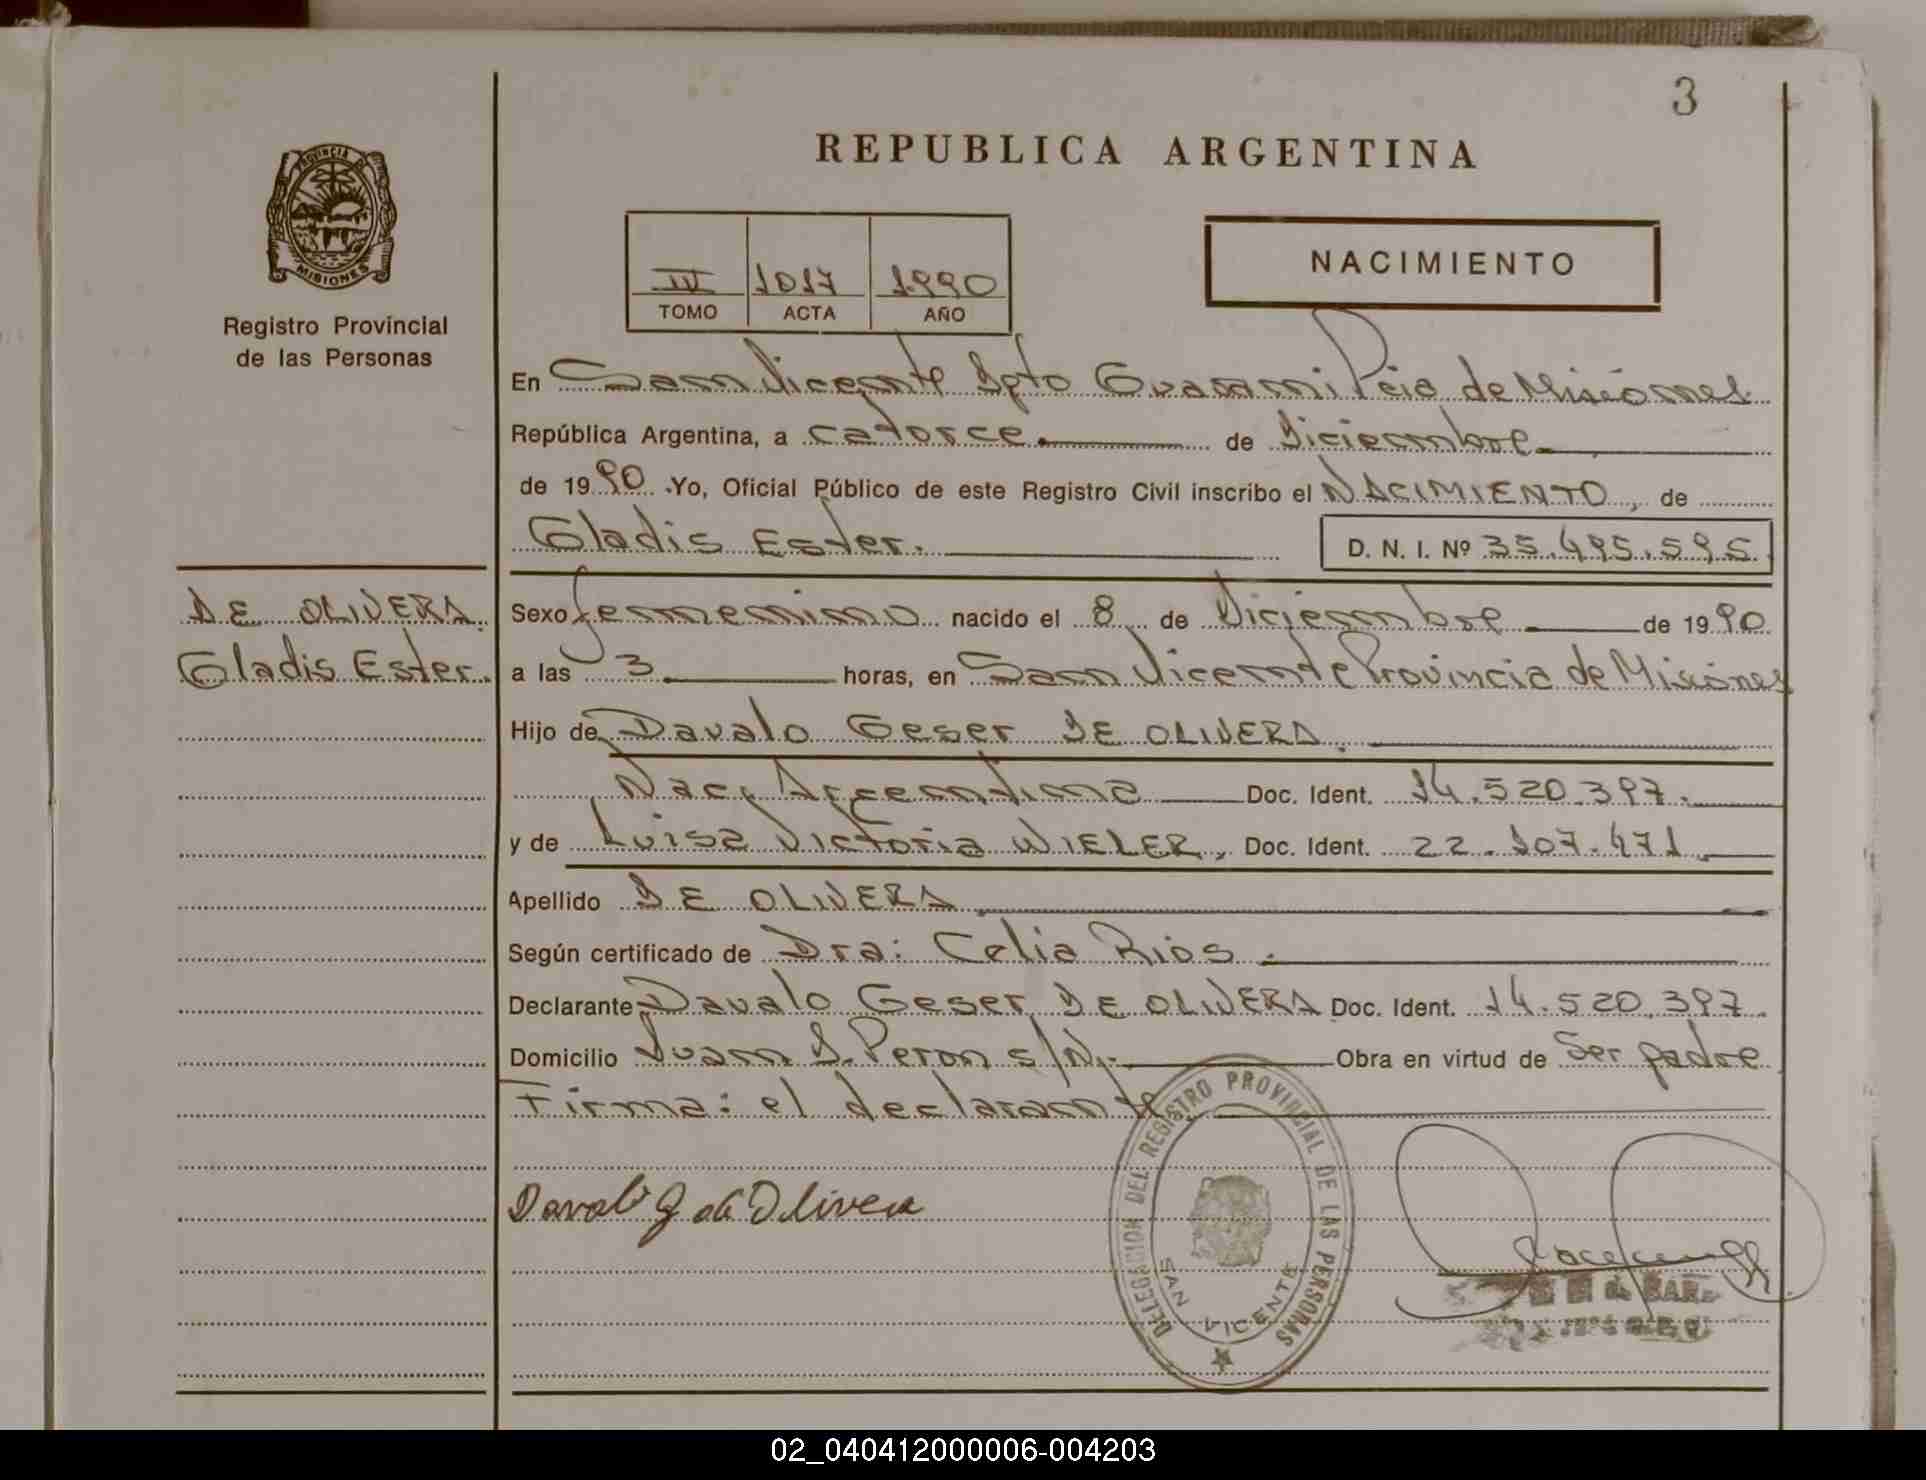 3
REPUBLICA ARGENTINA
PROVINCIA DE
MISIONES
Registro Provincial
de las Personas
1017 1.990
TOMO ACTA AÑO
NACIMIENTO
En San Vicente Dpto Guarani Pcia de Misiones
República Argentina, a catorce. de Diciembre
de 19 90 .Yo, Oficial Público de este Registro Civil inscribo el NACIMIENTO, de
Gladis Ester. D. N. I. Nº 35.495.595
DE OLIVERA.
Gladis Ester.
Sexo femenino nacido el 8 de Diciembre de 19 90
a las 3 horas, en San Vicente Provincia de Misiones
Hijo de Davalo Geser DE OLIVERA.
Nac. Argentina Doc. Ident. 14.520.397.
y de Luisa Victoria WIELER, Doc. Ident. 22.107.471
Apellido DE OLIVERA
Según certificado de Dra: Celia Rios.
Declarante Davalo Geser DE OLIVERA Doc. Ident. 14.520.397.
Domicilio Juan D. Peron s/N.- Obra en virtud de Ser padre
Firma: el declarante
Davalo G de Olivera
DELEGACION DEL REGISTRO PROVINCIAL DE LAS PERSONAS
SAN VICENTE
02_040412000006-004203